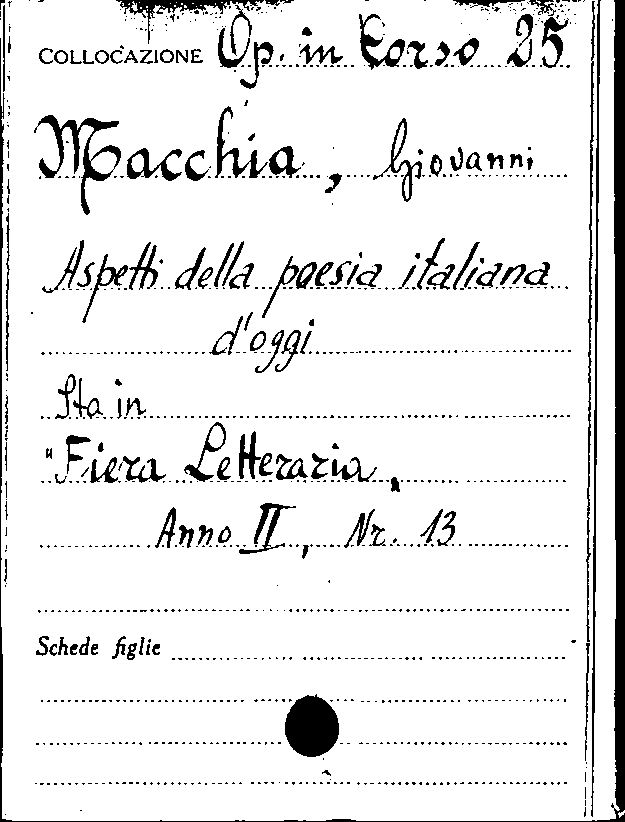 COLLOCAZIONE Op. in Corso 25
Macchia, Giovanni
Aspetti della poesia italiana
d'oggi
Sta in
"Fiera Letteraria"
Anno II, Nr. 13
Schede figlie